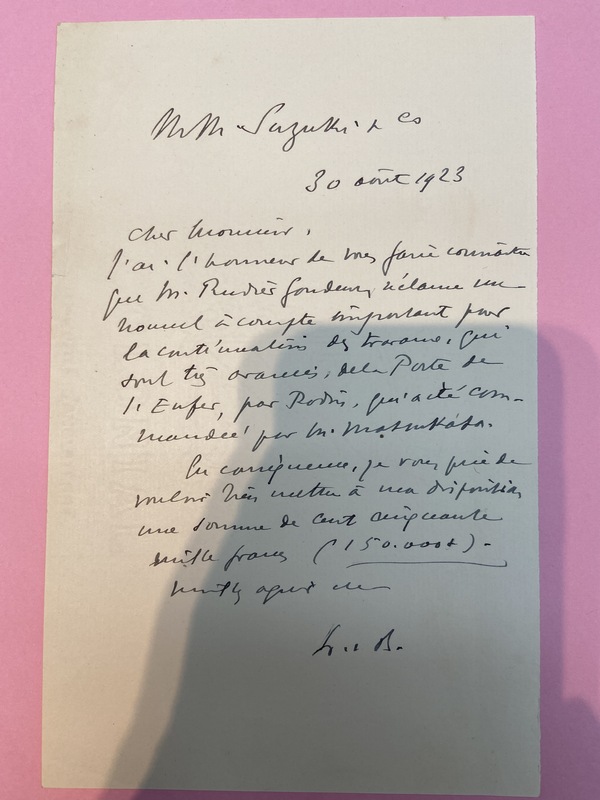 MM. Suzuki & Co
30 août 1923
Cher Monsieur,
J'ai l'honneur de vous faire connaître
que M. Rudier fondeur, réclame un
nouvel àcompte important pour
la continuation des travaux, qui
sont très avancés, de la Porte de
l'Enfer, par Rodin, qui a été com-
mandée par M. Matsukata.
En conséquence, je vous prie de
vouloir bien mettre à ma disposition
une somme de cent cinquante
mille francs (150.000f).
Veuillez agréer
L. B.